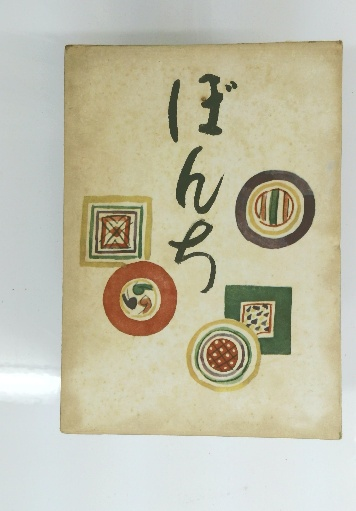 ぼんち